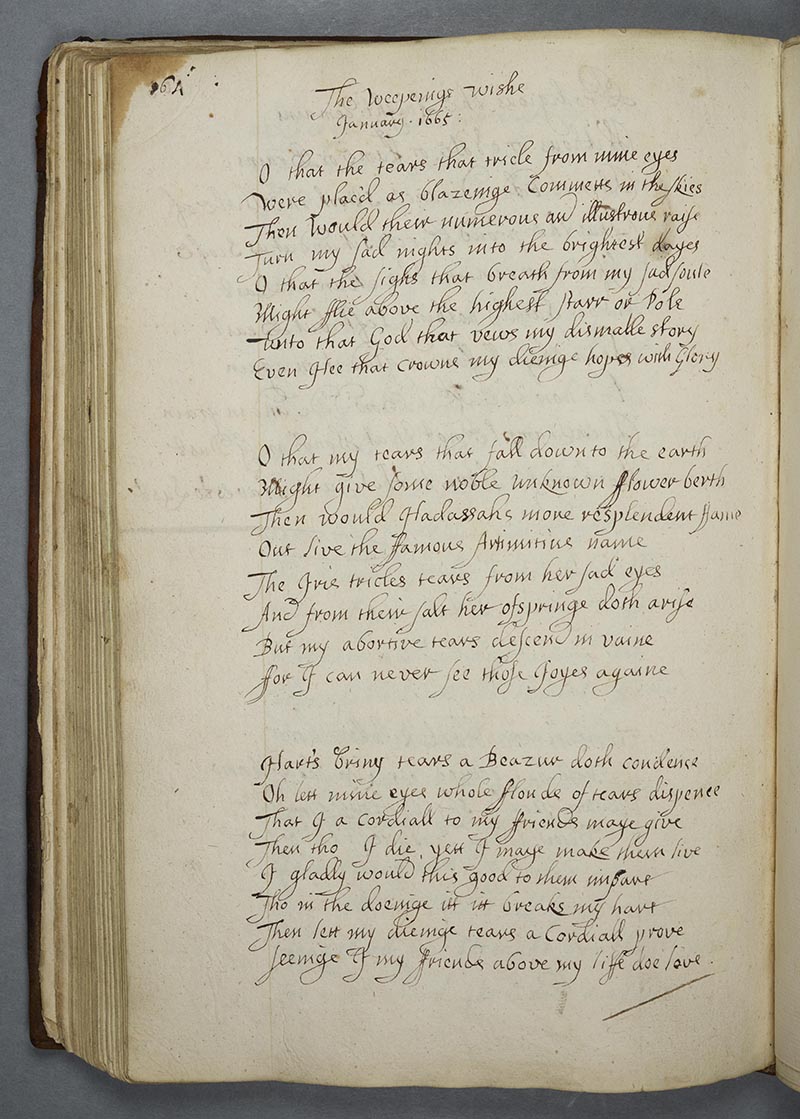 The Weepeinge wishe
January. 1665:
O that the tears that tricle from mine eyes
Were plac'd as blazeinge Commetts in the skies
Then would their numerous and illustrous raise
Turn my sad nights into the brightest dayes
O that the sighs that breath from my sad soule
Might flie above the highest starr or Pole
unto that God that vews my dismalle story
Even Hee that crowns my dieinge hopes with Glory
O that my tears that fall down to the earth
Might give some noble unknown fflower berth
Then would Hadassahs more resplendent fame
Out live the ffamous Artimitius name
The Iris tricles tears from her sad eyes
And from their salt her ofspringe doth arise
But my abortive tears descend in vaine
ffor I can never see those Joyes againe
Harts briny tears a Beazur doth condence
Oh lett mine eyes whole fflouds of tears dispence
That I a Cordiall to my ffriends maye give
Then tho I die, yett I maye make them live
I gladly would this good to them impart
Tho in the doeinge itt itt breaks my hart
Then lett my dieinge tears a Cordiall prove
seeinge I my ffriends above my liffe doe love.